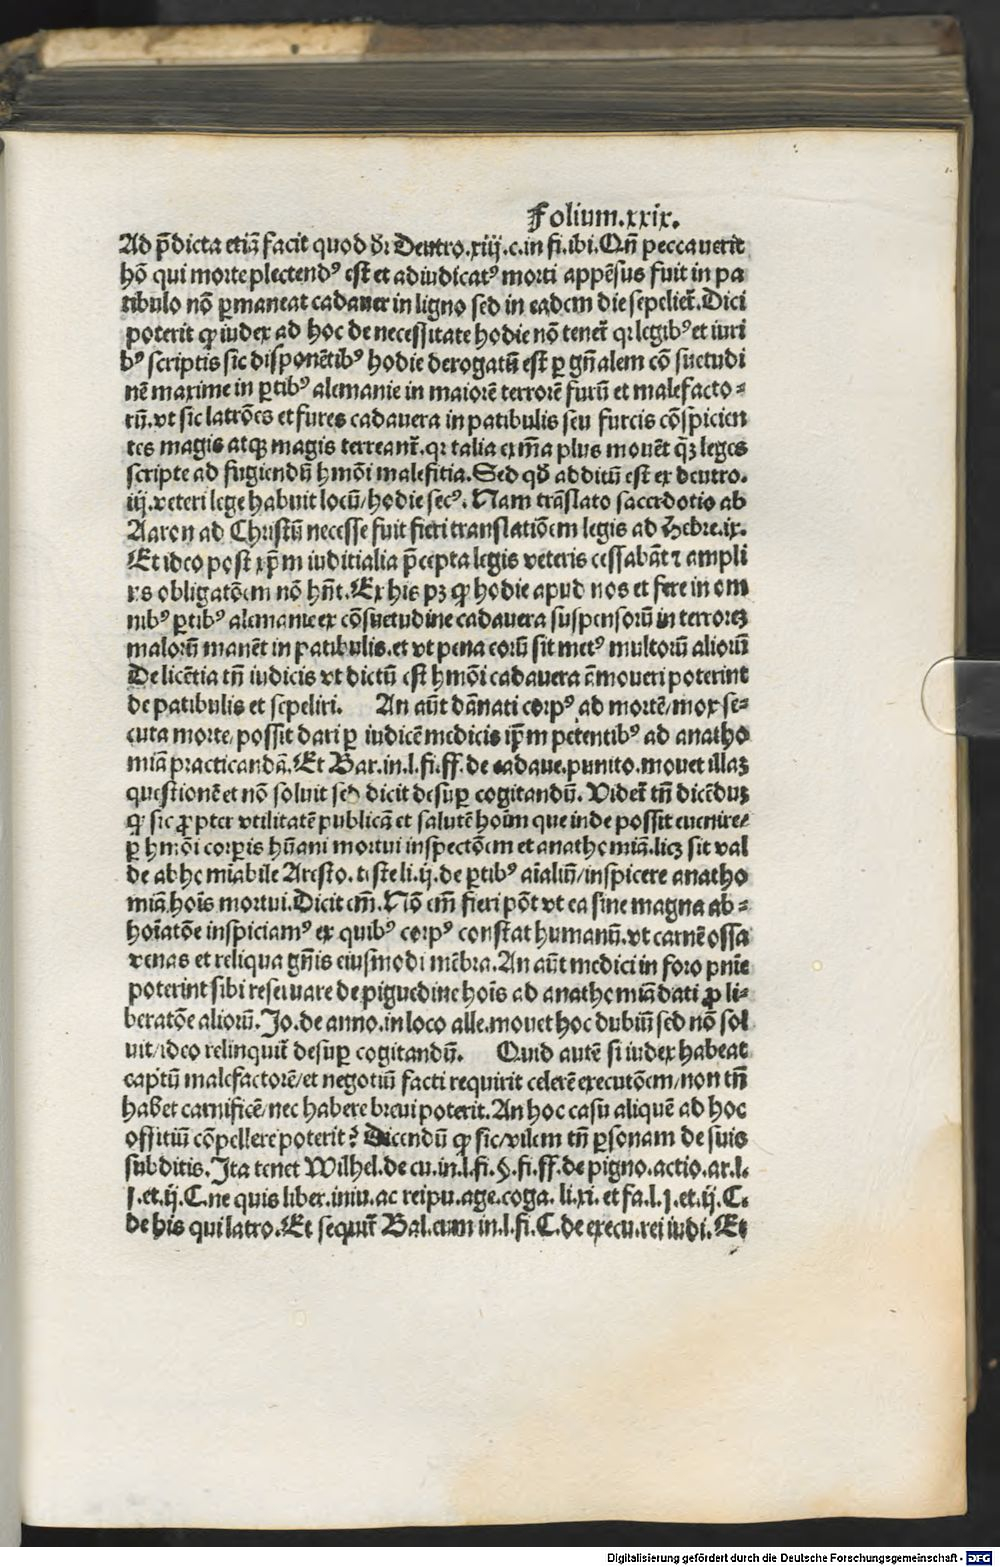 Folium.xxix.
Ad p̄dicta etiā facit quod dr̄ Deutro.xiij.c.in fi.ibi.Qn̄ peccauerit
hō qui morte plectendꝰ est et adiudicatꝰ morti appēsus fuit in pa
tibulo nō ꝑmaneat cadauer in ligno sed in eadem die sepeliet̄.Dici
poterit ꝙ iudex ad hoc de necessitate hodie nō tenet̄ qꝛ legibꝰ et iuri
bꝰ scriptis sic disponētibꝰ hodie derogatū est ꝑ gn̄alem cō suetudi
nē maxime in ꝑtibꝰ alemanie in maiorē terrorē furū et malefacto⸗
rū.vt sic latrōes et fures cadauera in patibulis seu furcis cōspicien
tes magis atqꝫ magis terreant̄.qꝛ talia exm̄a plus mouēt qꝫ leges
scripte ad fugiendū hmōi malefitia.Sed qd̄ additū est ex deutro.
iij.veteri lege habuit locū/hodie secꝰ. Nam trāslato sacerdotio ab
Aaron ad Christū necesse fuit fieri translatiōem legis ad Hebre.ix.
Et ideo post xp̄m iuditialia p̄cepta legis veteris cessabāt ⁊ ampli
vs obligatōem nō hn̄t.Ex his pꝫ ꝙ hodie apud nos et fere in om
nibꝰ ꝑtibꝰ alemanie ex cōsuetudine cadauera suspensorū in terrorēꝫ
malorū manēt in patibulis.et vt pena eorū sit metꝰ multorū aliorū
De licētia tn̄ iudicis vt dictū est hmōi cadauera āmoueri poterint
de patibulis et sepeliri. An aūt dānati corpꝰ ad mortē/mox se⸗
cuta morte/possit dari ꝑ iudicē medicis ip̄m petentibꝰ ad anatho
miā practicandā.Et Bar.in.l.fi.ff.de cadaue.punito.mouet illaꝫ
questionē et nō soluit sed dicit desuꝑ cogitandū.Videt̄ tn̄ dicēduꝫ
ꝙ sic ꝓpter vtilitatē publicā et salutē hoīm que inde possit euenire/
ꝑ hmōi corꝑis hūani mortui inspectōem et anathomiā.licꝫ sit val
de abhomiabile Aresto.teste li.ij.de ꝑtibꝰ aīaliū/inspicere anatho
miā hoīs mortui.Dicit em̄.Nō em̄ fieri pōt vt ea sine magna ab⸗
hoīatōe inspiciamꝰ ex quibꝰ corpꝰ constat humanū.vt carnē ossa
venas et reliqua gn̄is eiusmodi mēbra.An aūt medici in foro pnīe
poterint sibi reseruare de piguedine hoīs ad anathomiā dati ꝓ li⸗
beratōe aliorū.Jo.de anno.in loco alle.mouet hoc dubiū sed nō sol
uit/ideo relinquit̄ desuꝑ cogitandū. Quid autē si iudex habeat
captū malefactorē/et negotiū facti requirit celerē executōem/non tn̄
habet carnificē/nec habere breui poterit.An hoc casu aliquē ad hoc
offitiū cōpellere poterit? Dicendū ꝙ sic/vilem tn̄ ꝑsonam de suis
subditis.Ita tenet Wilhel.de cu.in.l.fi.§.fi.ff.de pigno.actio.ar.l.
j.et.ij.C.ne quis liber.iniu.ac reipu.age.coga. li.xi.et fa.l.j.et.ij.C.
de his qui latro.Et sequit̄ Bal.eum in.l.fi.C.de execu.rei iudi.Et
Digitalisierung gefördert durch die Deutsche Forschungsgemeinschaft - DFG